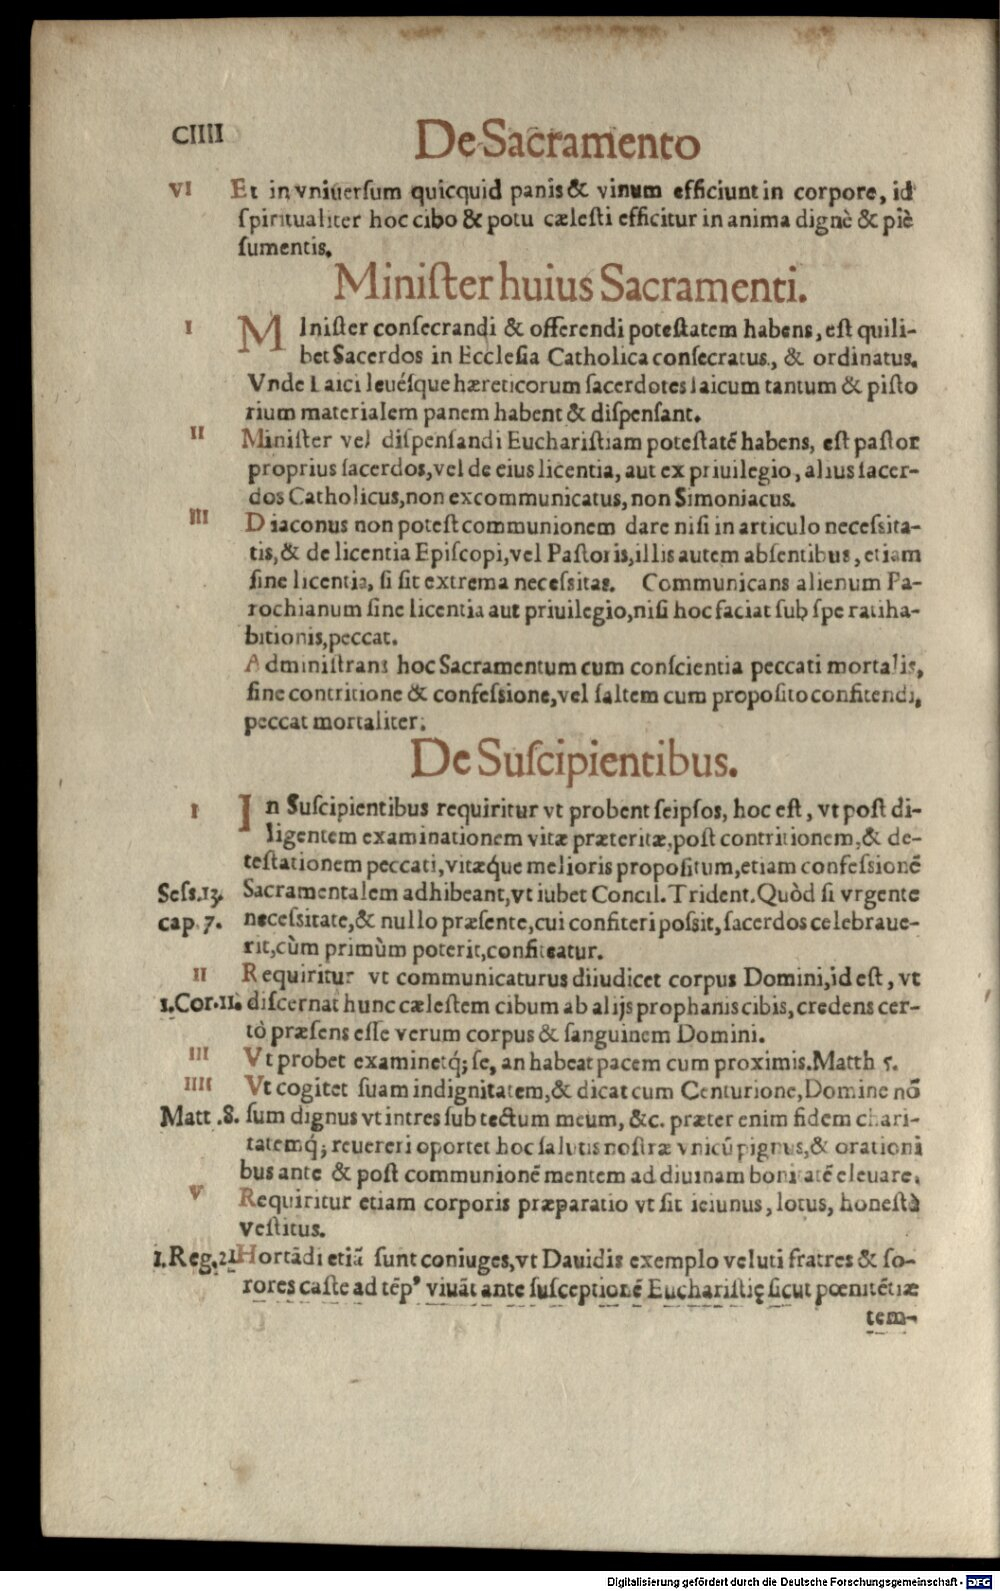 CIIII
De Sacramento
VI Et in vniuersum quicquid panis & vinum efficiunt in corpore, id
spiritualiter hoc cibo & potu cælesti efficitur in anima dignè & piè
sumentis.
Minister huius Sacramenti.
I MInister consecrandi & offerendi potestatem habens, est quili-
bet Sacerdos in Ecclesia Catholica consecratus., & ordinatus.
Vnde Laici leuésque hæreticorum sacerdotes laicum tantum & pisto
rium materialem panem habent & dispensant.
II Minister vel dispensandi Eucharistiam potestatē habens, est pastor
proprius sacerdos, vel de eius licentia, aut ex priuilegio, alius sacer-
dos Catholicus, non excommunicatus, non Simoniacus.
III Diaconus non potest communionem dare nisi in articulo necessita-
tis, & de licentia Episcopi, vel Pastoris, illis autem absentibus, etiam
sine licentia, si sit extrema necessitas. Communicans alienum Pa-
rochianum sine licentia aut priuilegio, nisi hoc faciat sub spe ratiha-
bitionis, peccat.
Administrans hoc Sacramentum cum conscientia peccati mortalis,
sine contritione & confessione, vel saltem cum proposito confitendi,
peccat mortaliter.
De Suscipientibus.
I In Suscipientibus requiritur vt probent seipsos, hoc est, vt post di-
ligentem examinationem vitæ præteritæ, post contritionem, & de-
testationem peccati, vitæq́ue melioris propositum, etiam confessionē
Sess. 13. Sacramentalem adhibeant, vt iubet Concil. Trident. Quòd si vrgente
cap. 7. necessitate, & nullo præsente, cui confiteri possit, sacerdos celebraue-
rit, cùm primùm poterit, confiteatur.
II Requiritur vt communicaturus diiudicet corpus Domini, id est, vt
1. Cor. 11. discernat hunc cælestem cibum ab alijs prophanis cibis, credens cer-
tò præsens esse verum corpus & sanguinem Domini.
III Vt probet examinetq́; se, an habeat pacem cum proximis. Matth 5.
IIII Vt cogitet suam indignitatem, & dicat cum Centurione, Domine nō
Matt. 8. sum dignus vt intres sub tectum meum, &c. præter enim fidem chari-
tatemq́; reuereri oportet hoc salutis nostræ vnicū pignus, & orationi
bus ante & post communionē mentem ad diuinam bonitatē eleuare.
V Requiritur etiam corporis præparatio vt sit ieiunus, lotus, honestè
vestitus.
1. Reg. 21 Hortādi etiā sunt coniuges, vt Dauidis exemplo veluti fratres & so-
rores caste ad tēpꝰ viuāt ante susceptionē Eucharistię sicut pœnitētiæ
tem-
Digitalisierung gefördert durch die Deutsche Forschungsgemeinschaft - DFG